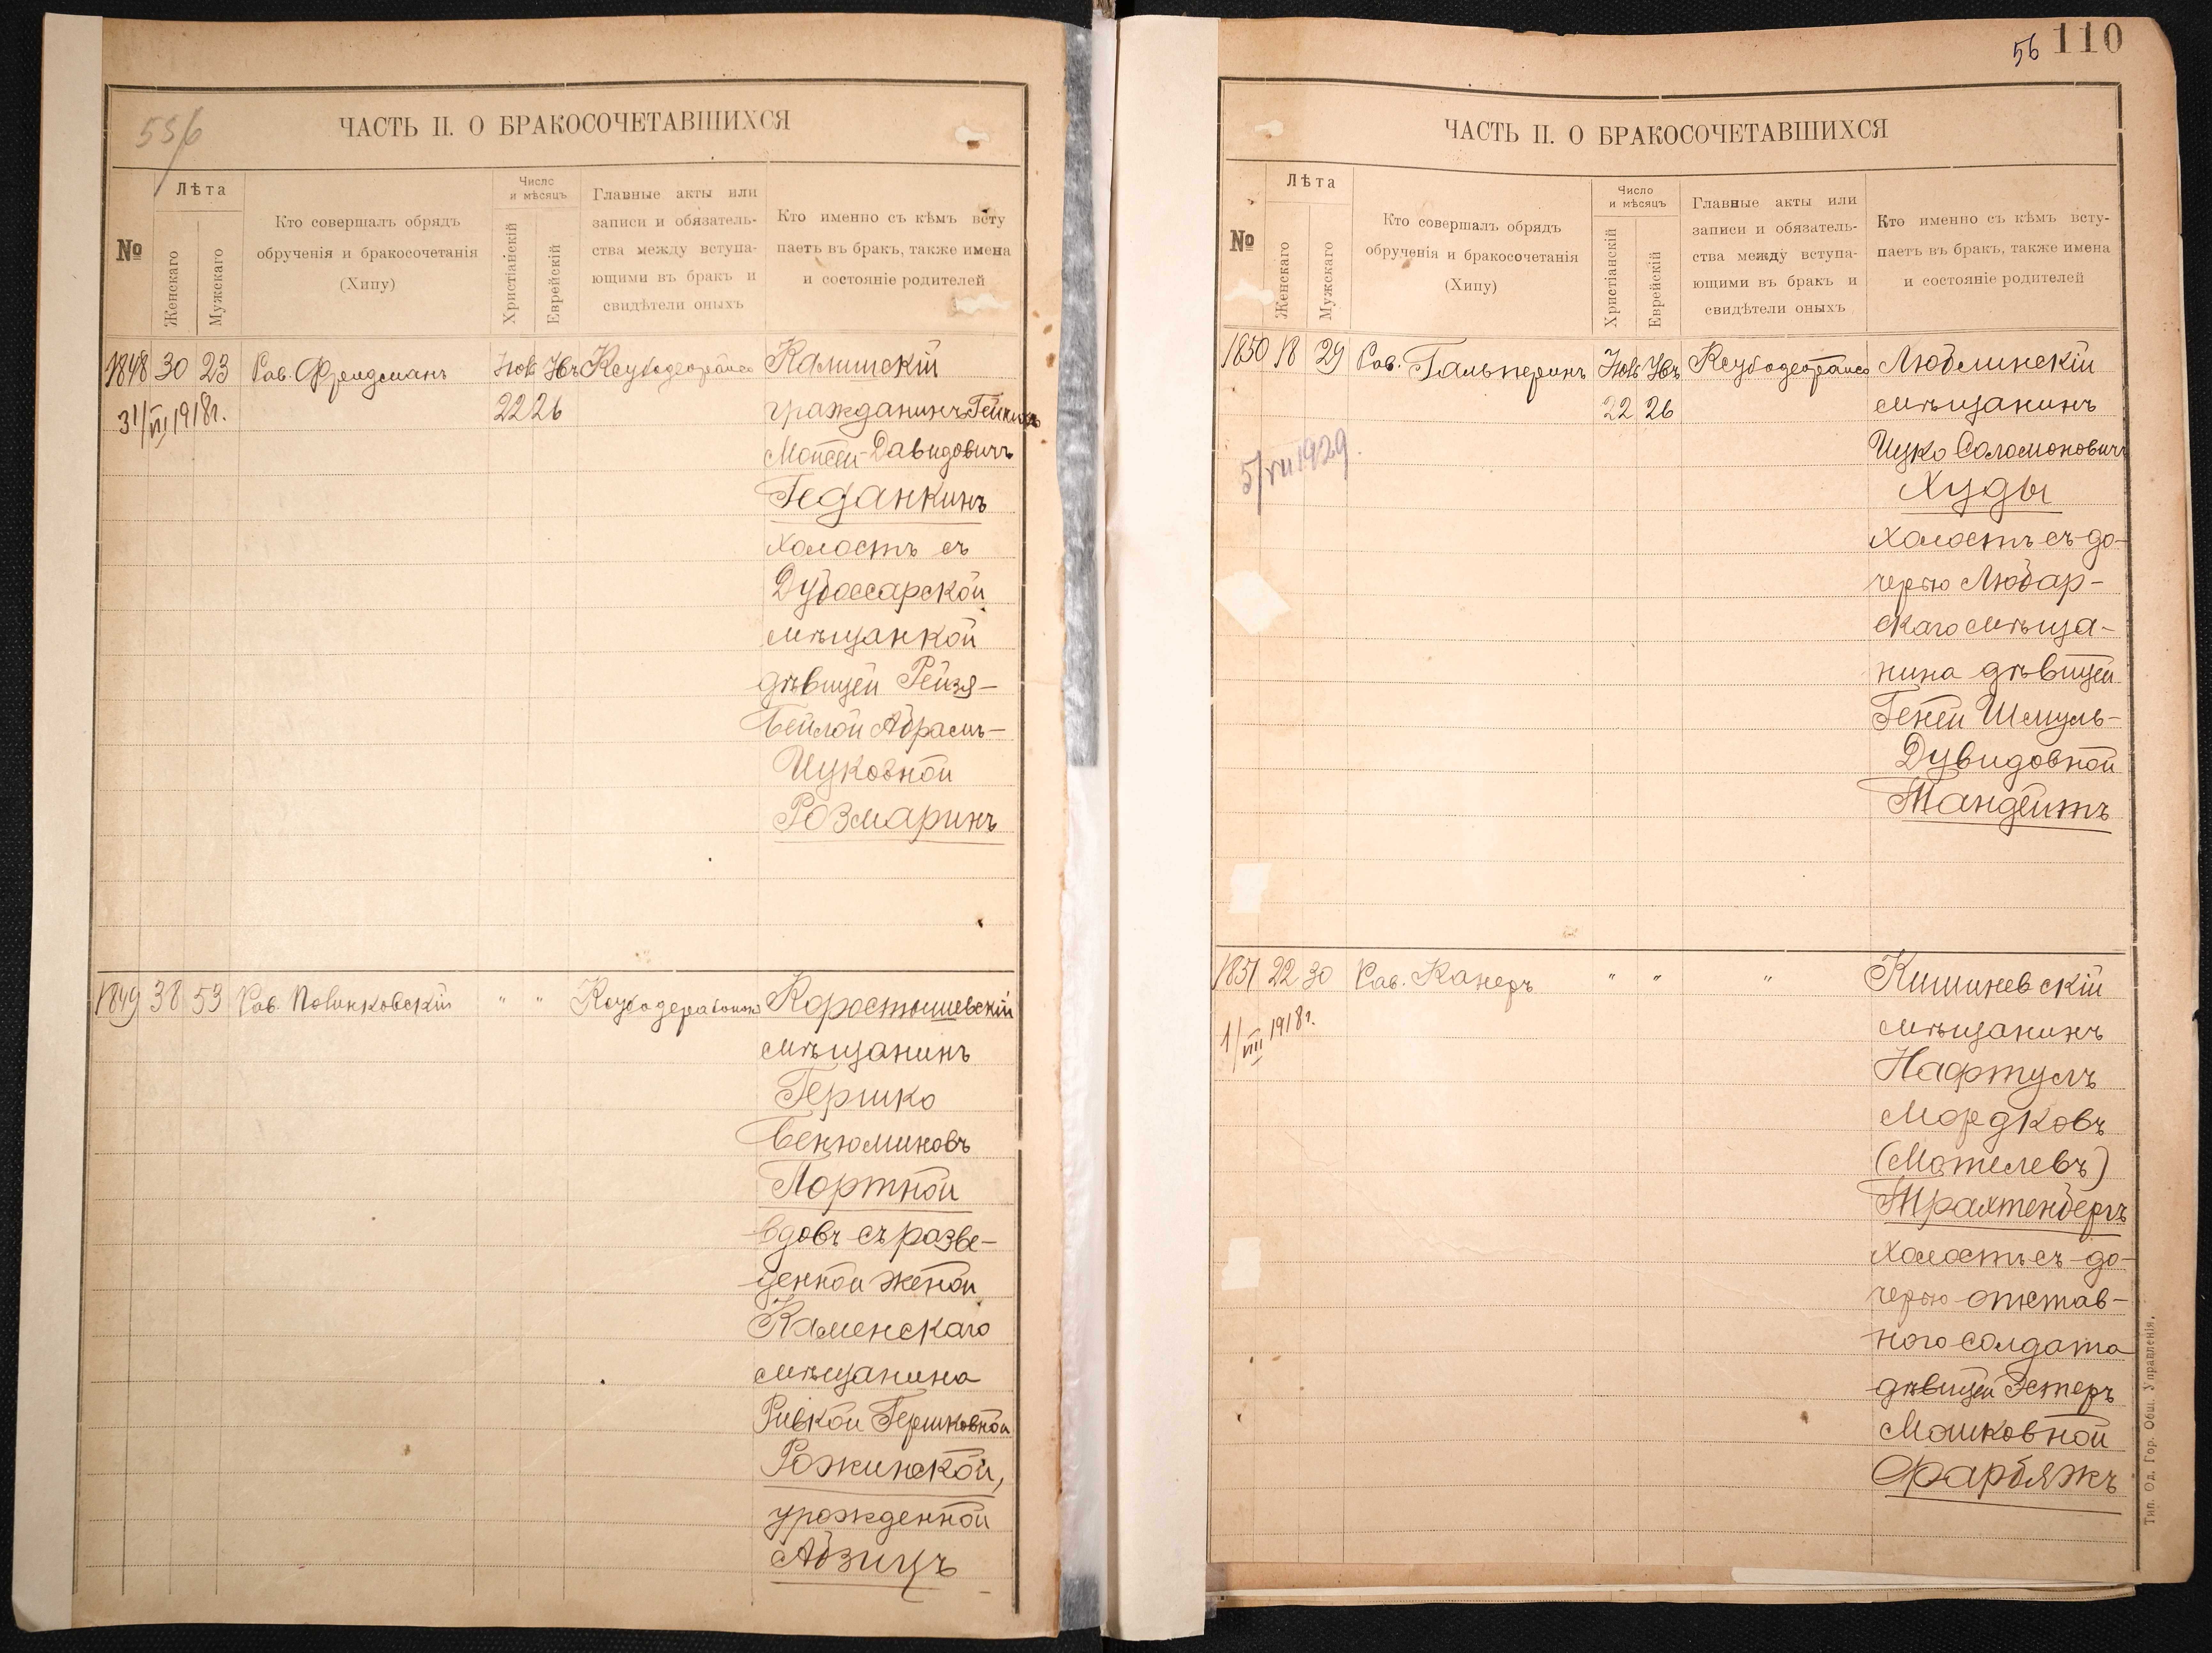 55/6
ЧАСТЬ II. О БРАКОСОЧЕТАВШИХСЯ
№
Лѣта
Женскаго
Мужскаго
Кто совершалъ обрядъ
обрученія и бракосочетанія
(Хипу)
Число
и мѣсяцъ
Христіанскій
Еврейскій
Главные акты или
записи и обязатель-
ства между вступа-
ющими въ бракъ и
свидѣтели оныхъ
Кто именно съ кѣмъ всту
паетъ въ бракъ, также имена
и состояніе родителей
1848 30 23 Рав. Фридманъ
31/VII 1918г.
22 26
Калишскій
гражданинъ
Мойсей-Давидовичъ
Геданкинъ
холостъ съ
Дубоссарской
мѣщанкой
дѣвицей Рейзя-
Бейлой Абрамъ-
Ицковной
Розмаринъ
1849 38 53 Рав. " "
Коростышевскій
мѣщанинъ
Гершко
Бенюминовъ
Портной
вдовъ съ разве-
денной женой
Каменскаго
мѣщанина
Ривкой Гершковной
Рожинской,
урожденной
Абзицъ
56 110
ЧАСТЬ II. О БРАКОСОЧЕТАВШИХСЯ
№
Лѣта
Женскаго
Мужскаго
Кто совершалъ обрядъ
обрученія и бракосочетанія
(Хипу)
Число
и мѣсяцъ
Христіанскій
Еврейскій
Главные акты или
записи и обязатель-
ства между вступа-
ющими въ бракъ и
свидѣтели оныхъ
Кто именно съ кѣмъ всту-
паетъ въ бракъ, также имена
и состояніе родителей
1850 18 29 Рав. Гальперинъ
22 26
5/VII 1929.
Люблинскій
мѣщанинъ
Ицко Соломоновичъ
Худы
холостъ съ до-
черью Любар-
скаго мѣща-
нина дѣвицей
Геней Шмуль-
Дувидовной
Мандейтъ
1851 22 30 Рав. Канеръ " " "
1/VIII 1918г.
Кишиневскій
мѣщанинъ
Нафтулъ
Мордковъ
(Мотелевъ)
Трахтенбергъ
холостъ съ до-
черью отстав-
ного солдата
дѣвицей Эстеръ
Мошковной
Фарбяжъ
Тип. Од. Гор. Общ. Управленія.